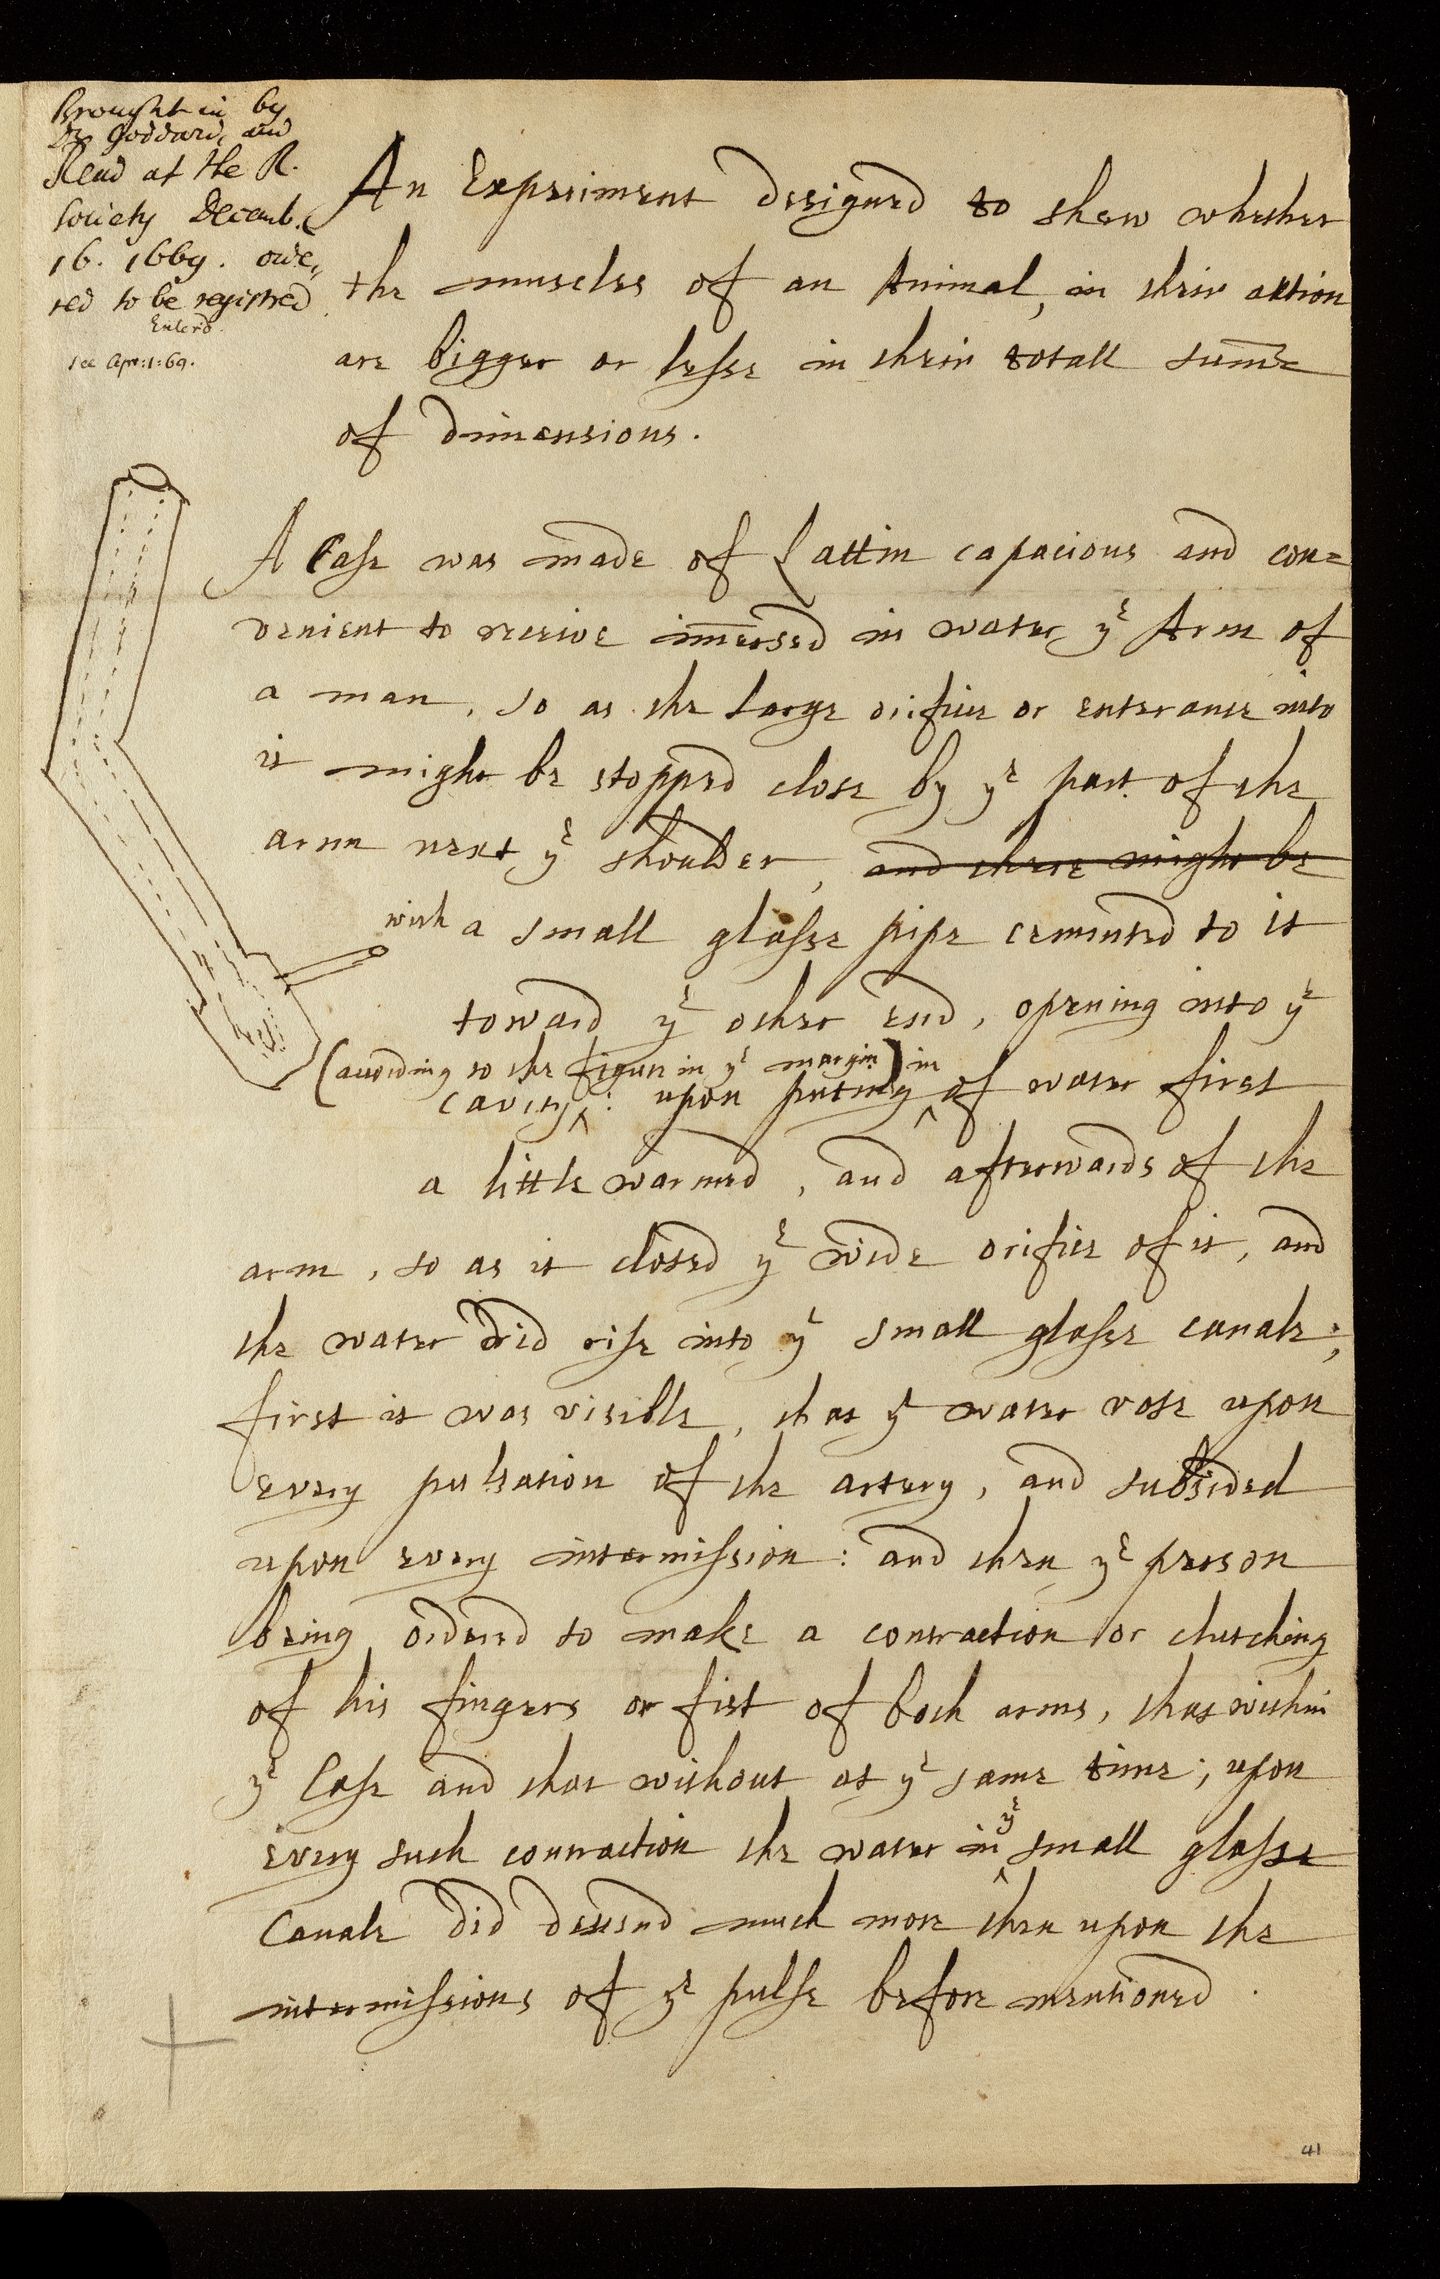 Brought in by
Dr Goddard, and
Read at the R.
Society Decemb.
16. 1669. orde,,
red to be registred
Enterd.
see Apr: 1: 69.
An Experiment designed to shew whether
the muscles of an Animal, in their action
are bigger or lesse in their totall sum̄e
of dimensions.
A Case was made of Lattin capacious and con=
venient to receive im̄ersed in water yᵉ Arm of
a man, so as the large orifice or enterance into
it might be stopped close by yᵉ part of the
arm next yᵉ shoulder, and there might be
with a small glasse pipe cemented to it
toward yᵉ other end, opening into yᵉ
(according to the figure in yᵉ margin) in
cavity^: upon putting ^ of water first
a little warmed, and afterwards of the
arm, so as it closed yᵉ wide orifice of it, and
the water did rise into yᵉ small glasse canale;
first it was visible, that yᵉ water rose upon
every pulsation of the artery, and subsided
upon every intermission: and then yᵉ person
being ordered to make a contraction or clutching
of his fingers or fist of both arms, that within
yᵉ Case and that without at yᵉ same time; upon
yᵉ
every such contraction the water in ^ small glasse
Canale did descend much more then upon the
intermissions of yᵉ pulse before mentioned.
41